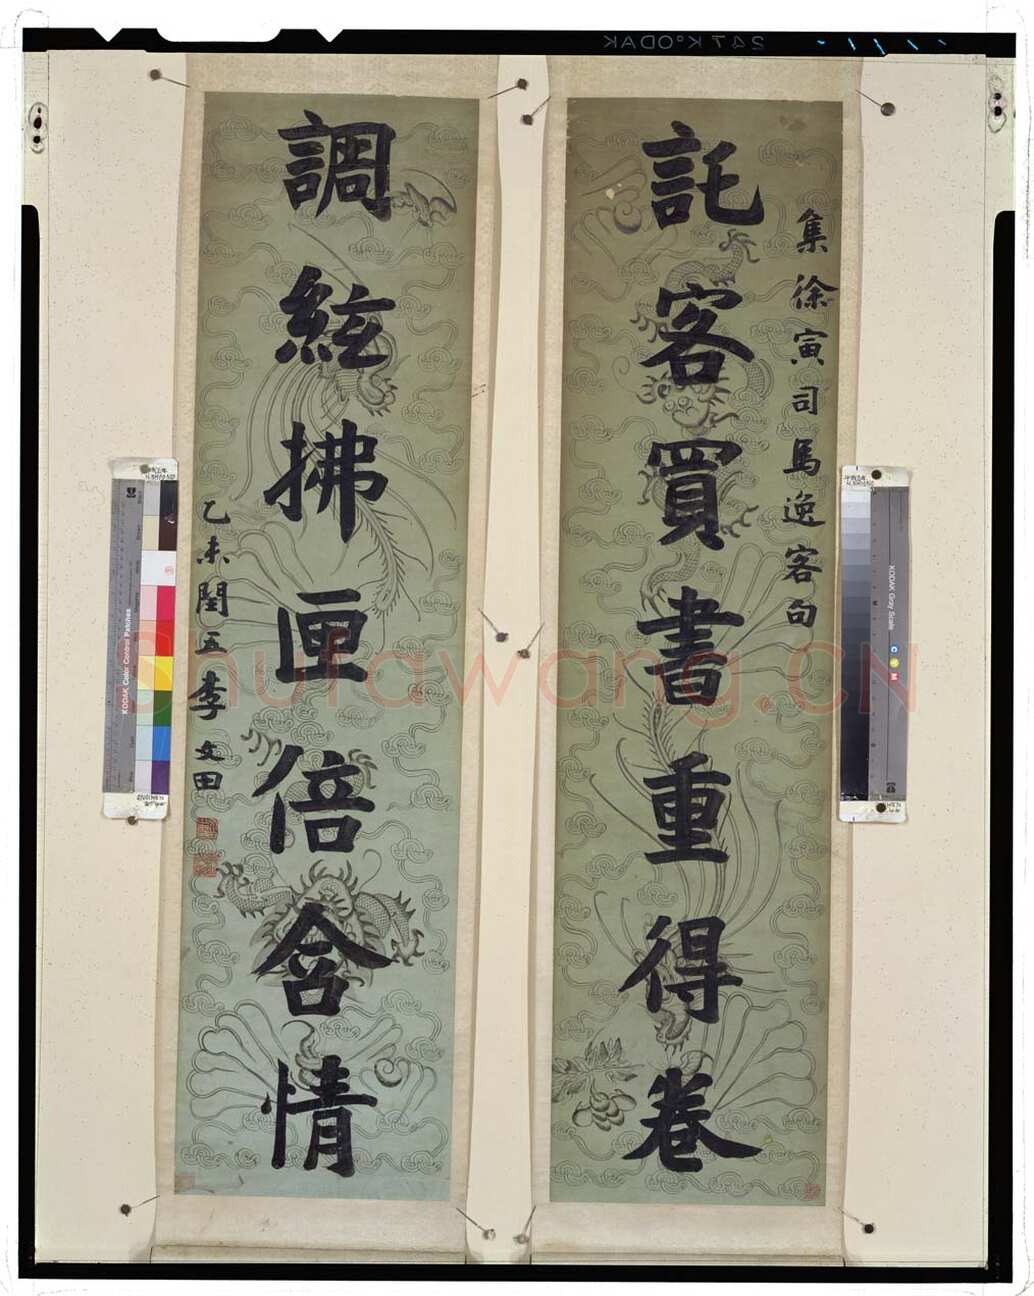 集徐寅司馬逸客句
託客買書重得卷
調絃拂匣倍含情
乙未閏五李文田
Shufawang.CN
247 KODAK
KODAK Color Control Patches
KODAK Gray Scale